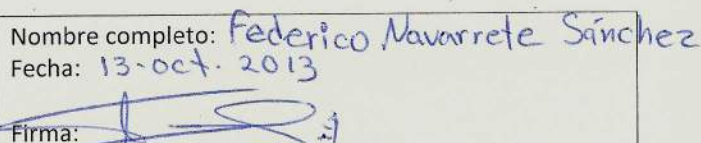 Nombre completo: Federico Navarrete Sánchez
Fecha: 13-oct. 2013
Firma: